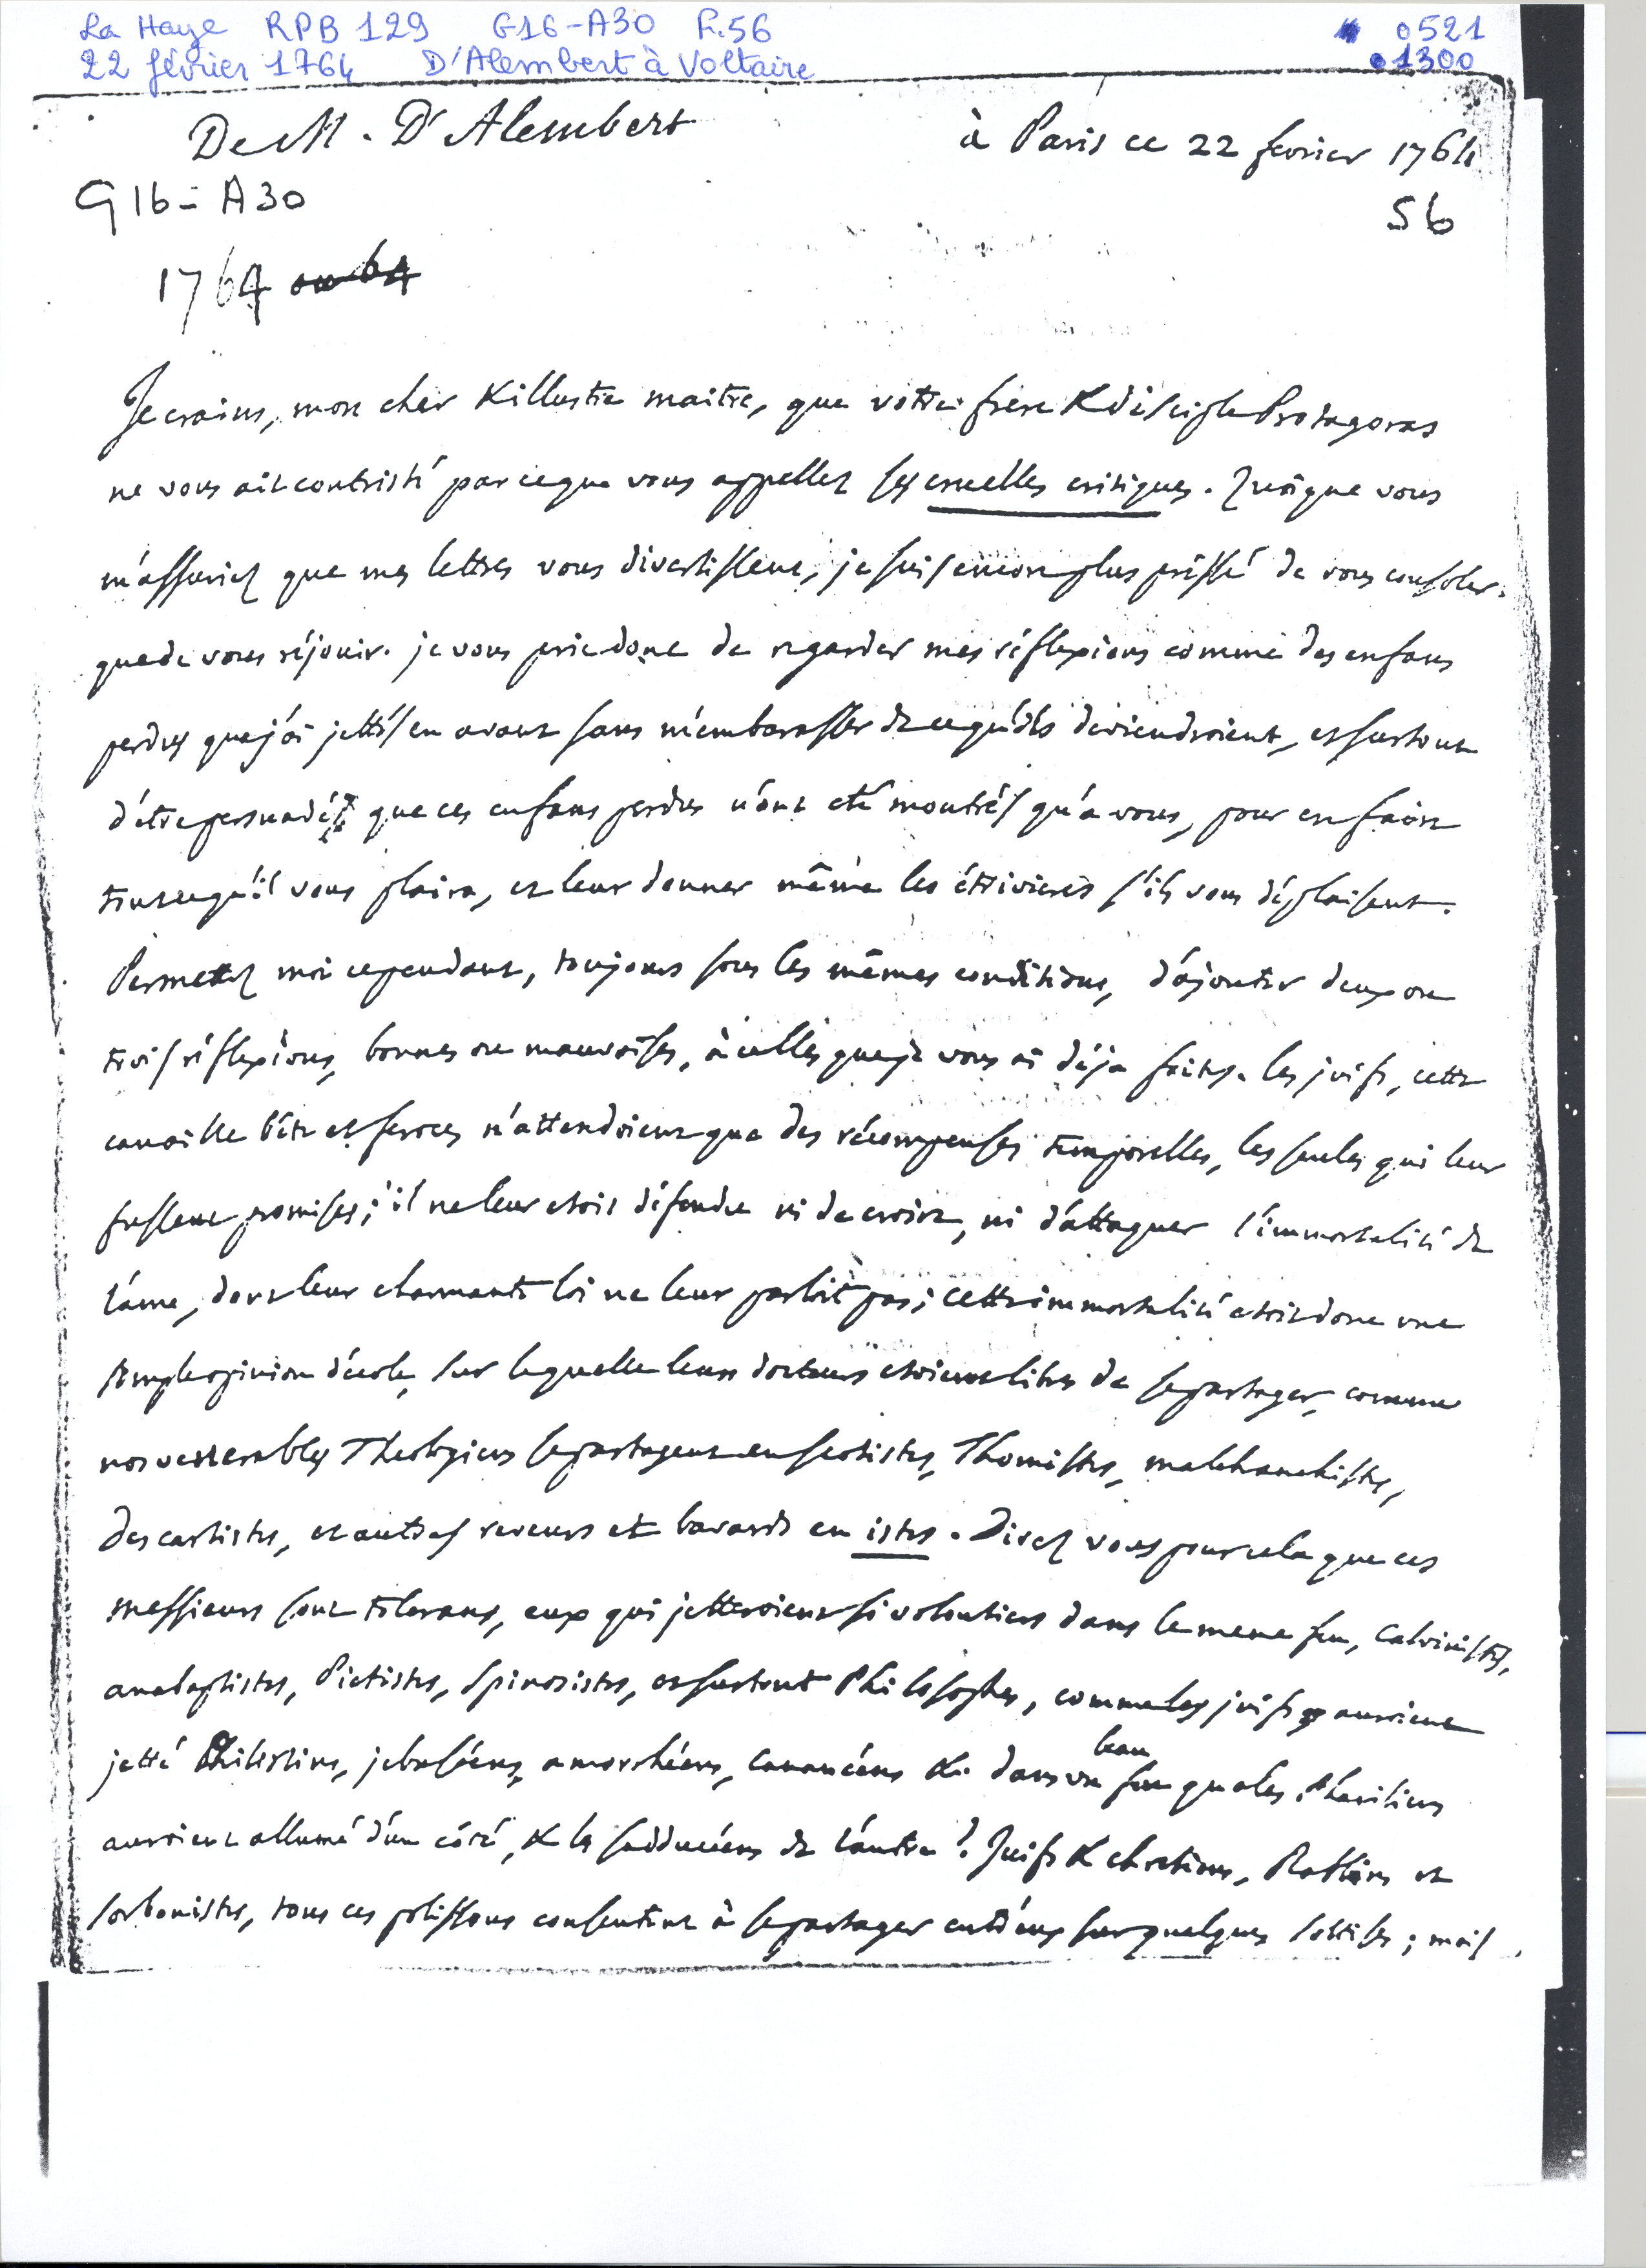 La Haye RPB 129 G16-A30 F.56 0521
22 février 1764 D'Alembert à Voltaire 1300
De M. D'Alembert à Paris ce 22 fevrier 1764
G16-A30 56
1764 ou 64
Je crains, mon cher & illustre maitre, que votre frere & disciple Protagoras
ne vous ait contristé par ce que vous appellez ses cruelles critiques. Quoique vous
m'assuriez que mes lettres vous divertissent, je suis encore plus pressé de vous consoler
que de vous réjouir. je vous prie donc de regarder mes réflexions comme des enfans
perdus que j'ai jettés en avant sans m'embarasser de ce qu'ils deviendroient, et surtout
d'être persuadé que ces enfans perdus n'ont eté montrés qu'a vous, pour en faire
tout ce qu'il vous plaira, et leur donner même les étrivieres s'ils vous déplaisent.
Permettez moi cependant, toujours sous les mêmes conditions, d'ajouter deux ou
trois réflexions, bonnes ou mauvaises, à celles que je vous ai déja faites. les juifs, cette
canaille bête et feroce, n'attendoient que des récompenses temporelles, les seules qui leur
fussent promises; il ne leur etoit défendu ni de croire, ni d'attaquer l'immortalité de
l'ame, dont leur charmante loi ne leur parloit pas; cette immortalité etoit donc une
simple opinion d'école, sur laquelle leurs docteurs etoient libres de se partager, comme
nos venerables Theologiens se partagent en scotistes, Thomistes, malebranchistes,
descartistes, et autres reveurs et bavards en istes. Direz vous pour cela que ces
messieurs sont tolerans, eux qui jetteroient si volontiers dans le meme feu, Calvinistes,
anabaptistes, Pietistes, Spinosistes, et surtout Philosophes, comme les juifs auroient
jetté Philistins, jebuséens, amorrhéens, cananéens &c dans un beau feu que les Pharisiens
auroient allumé d'un côté, & les sadducéens de l'autre? Juifs & chretiens, Rabbins et
sorbonistes, tous ces polissons consentent à se partager entr'eux sur quelques sottises; mais